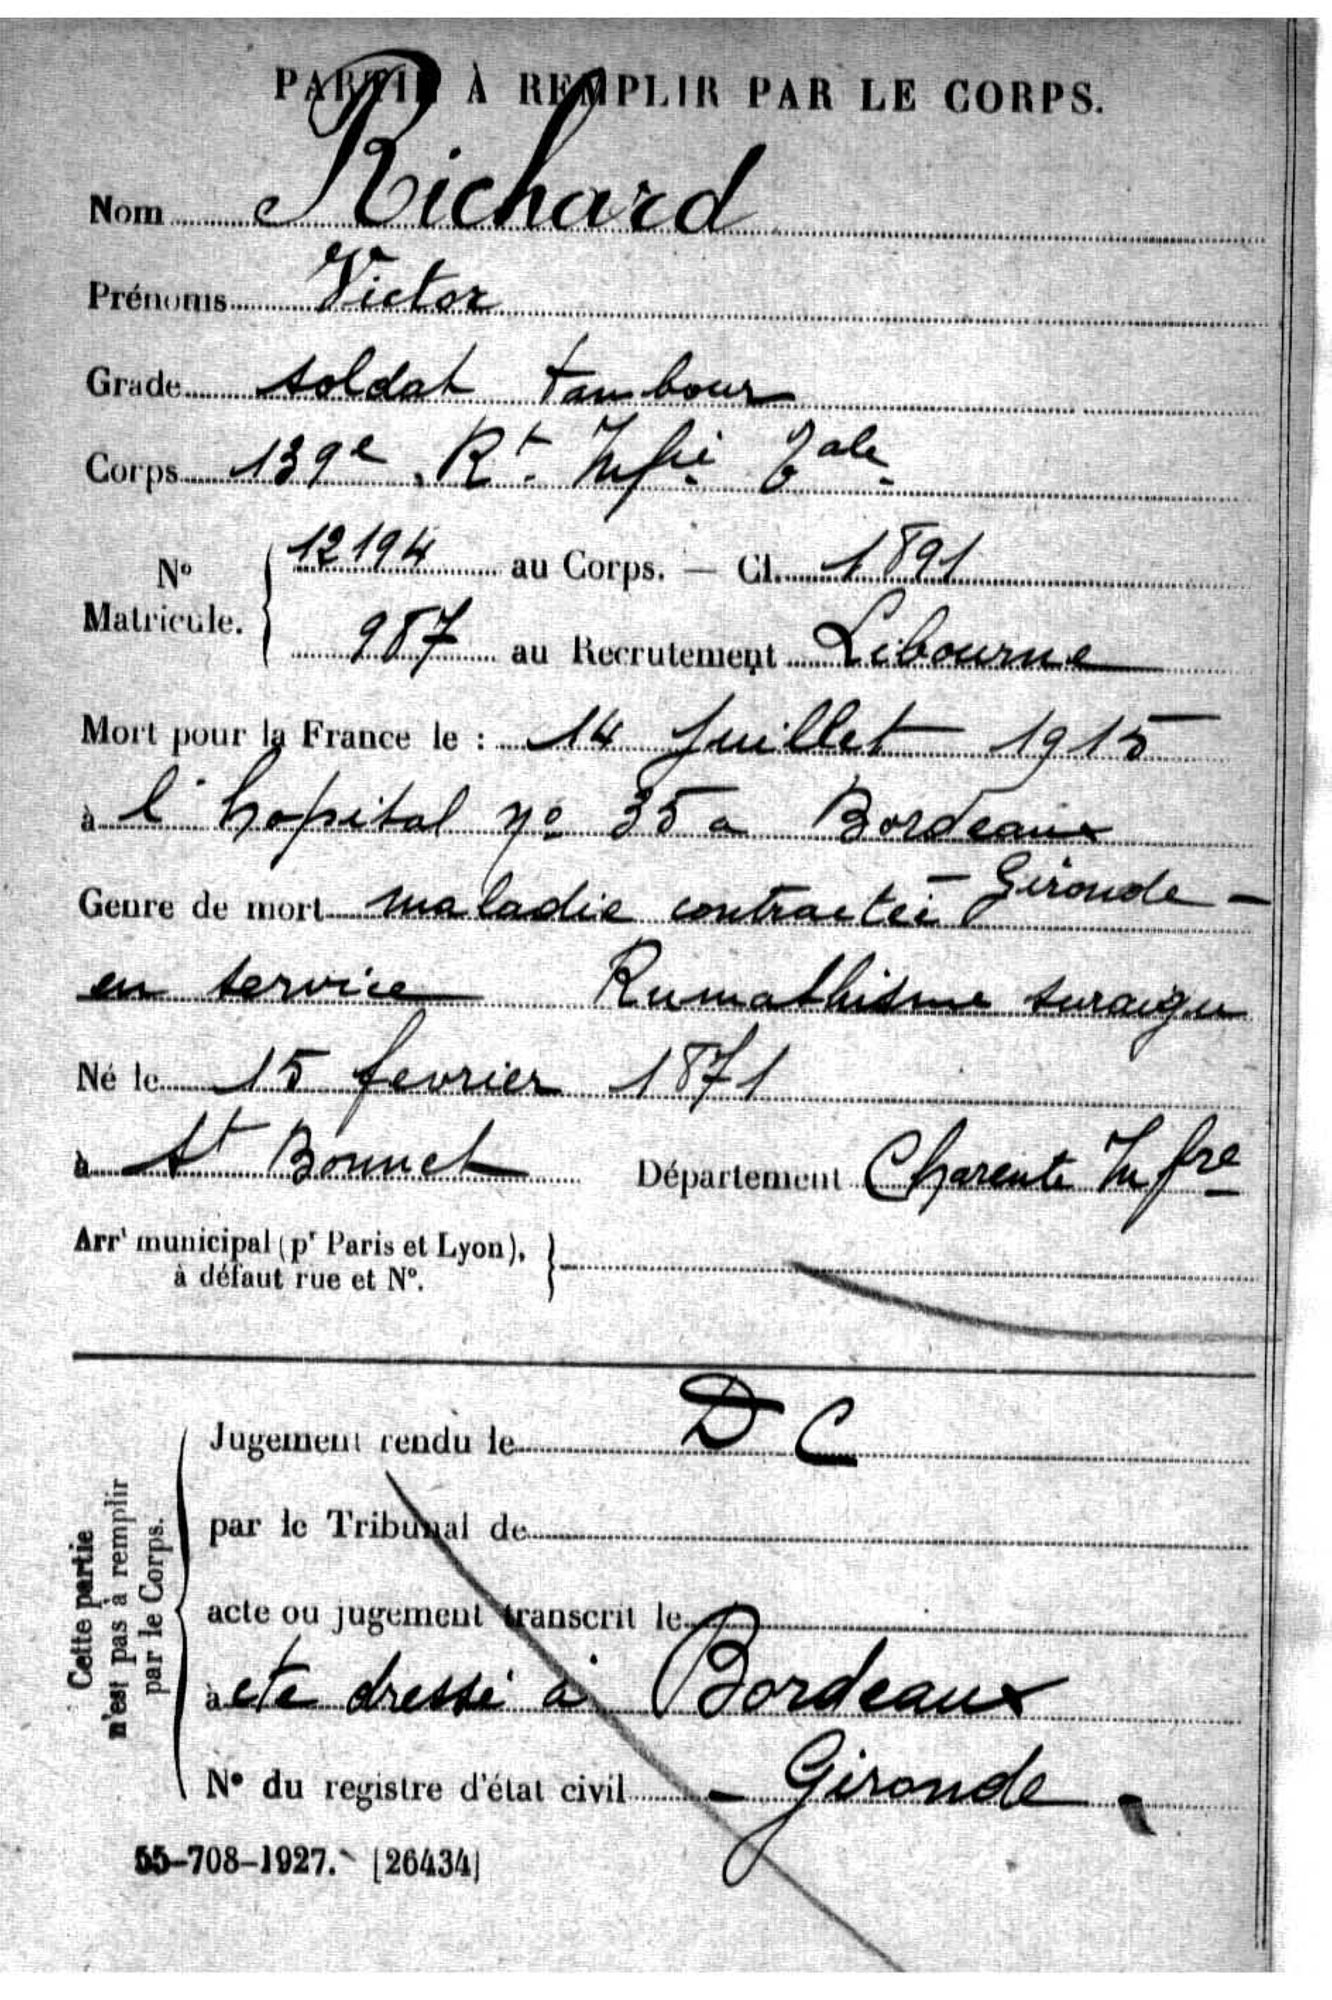 PARTIE À REMPLIR PAR LE CORPS.
Nom Richard
Prénoms Victor
Grade soldat tambour
Corps 139e Rt Infie Tale
N° Matricule. 12194 au Corps. — Cl. 1891
987 au Recrutement Libourne
Mort pour la France le : 14 Juillet 1915
à l'hopital no 35 a Bordeaux
— Gironde —
Genre de mort maladie contractée
en service Rumathisme suraigu
Né le 15 fevrier 1871
à St Bonnet Département Charente Infre
Arrt municipal (pr Paris et Lyon),
à défaut rue et N°.
Cette partie
n'est pas à remplir
par le Corps.
Jugement rendu le D C
par le Tribunal de
acte ou jugement transcrit le
à ete dressé à Bordeaux
N° du registre d'état civil — Gironde -
55-708-1927. [26434]